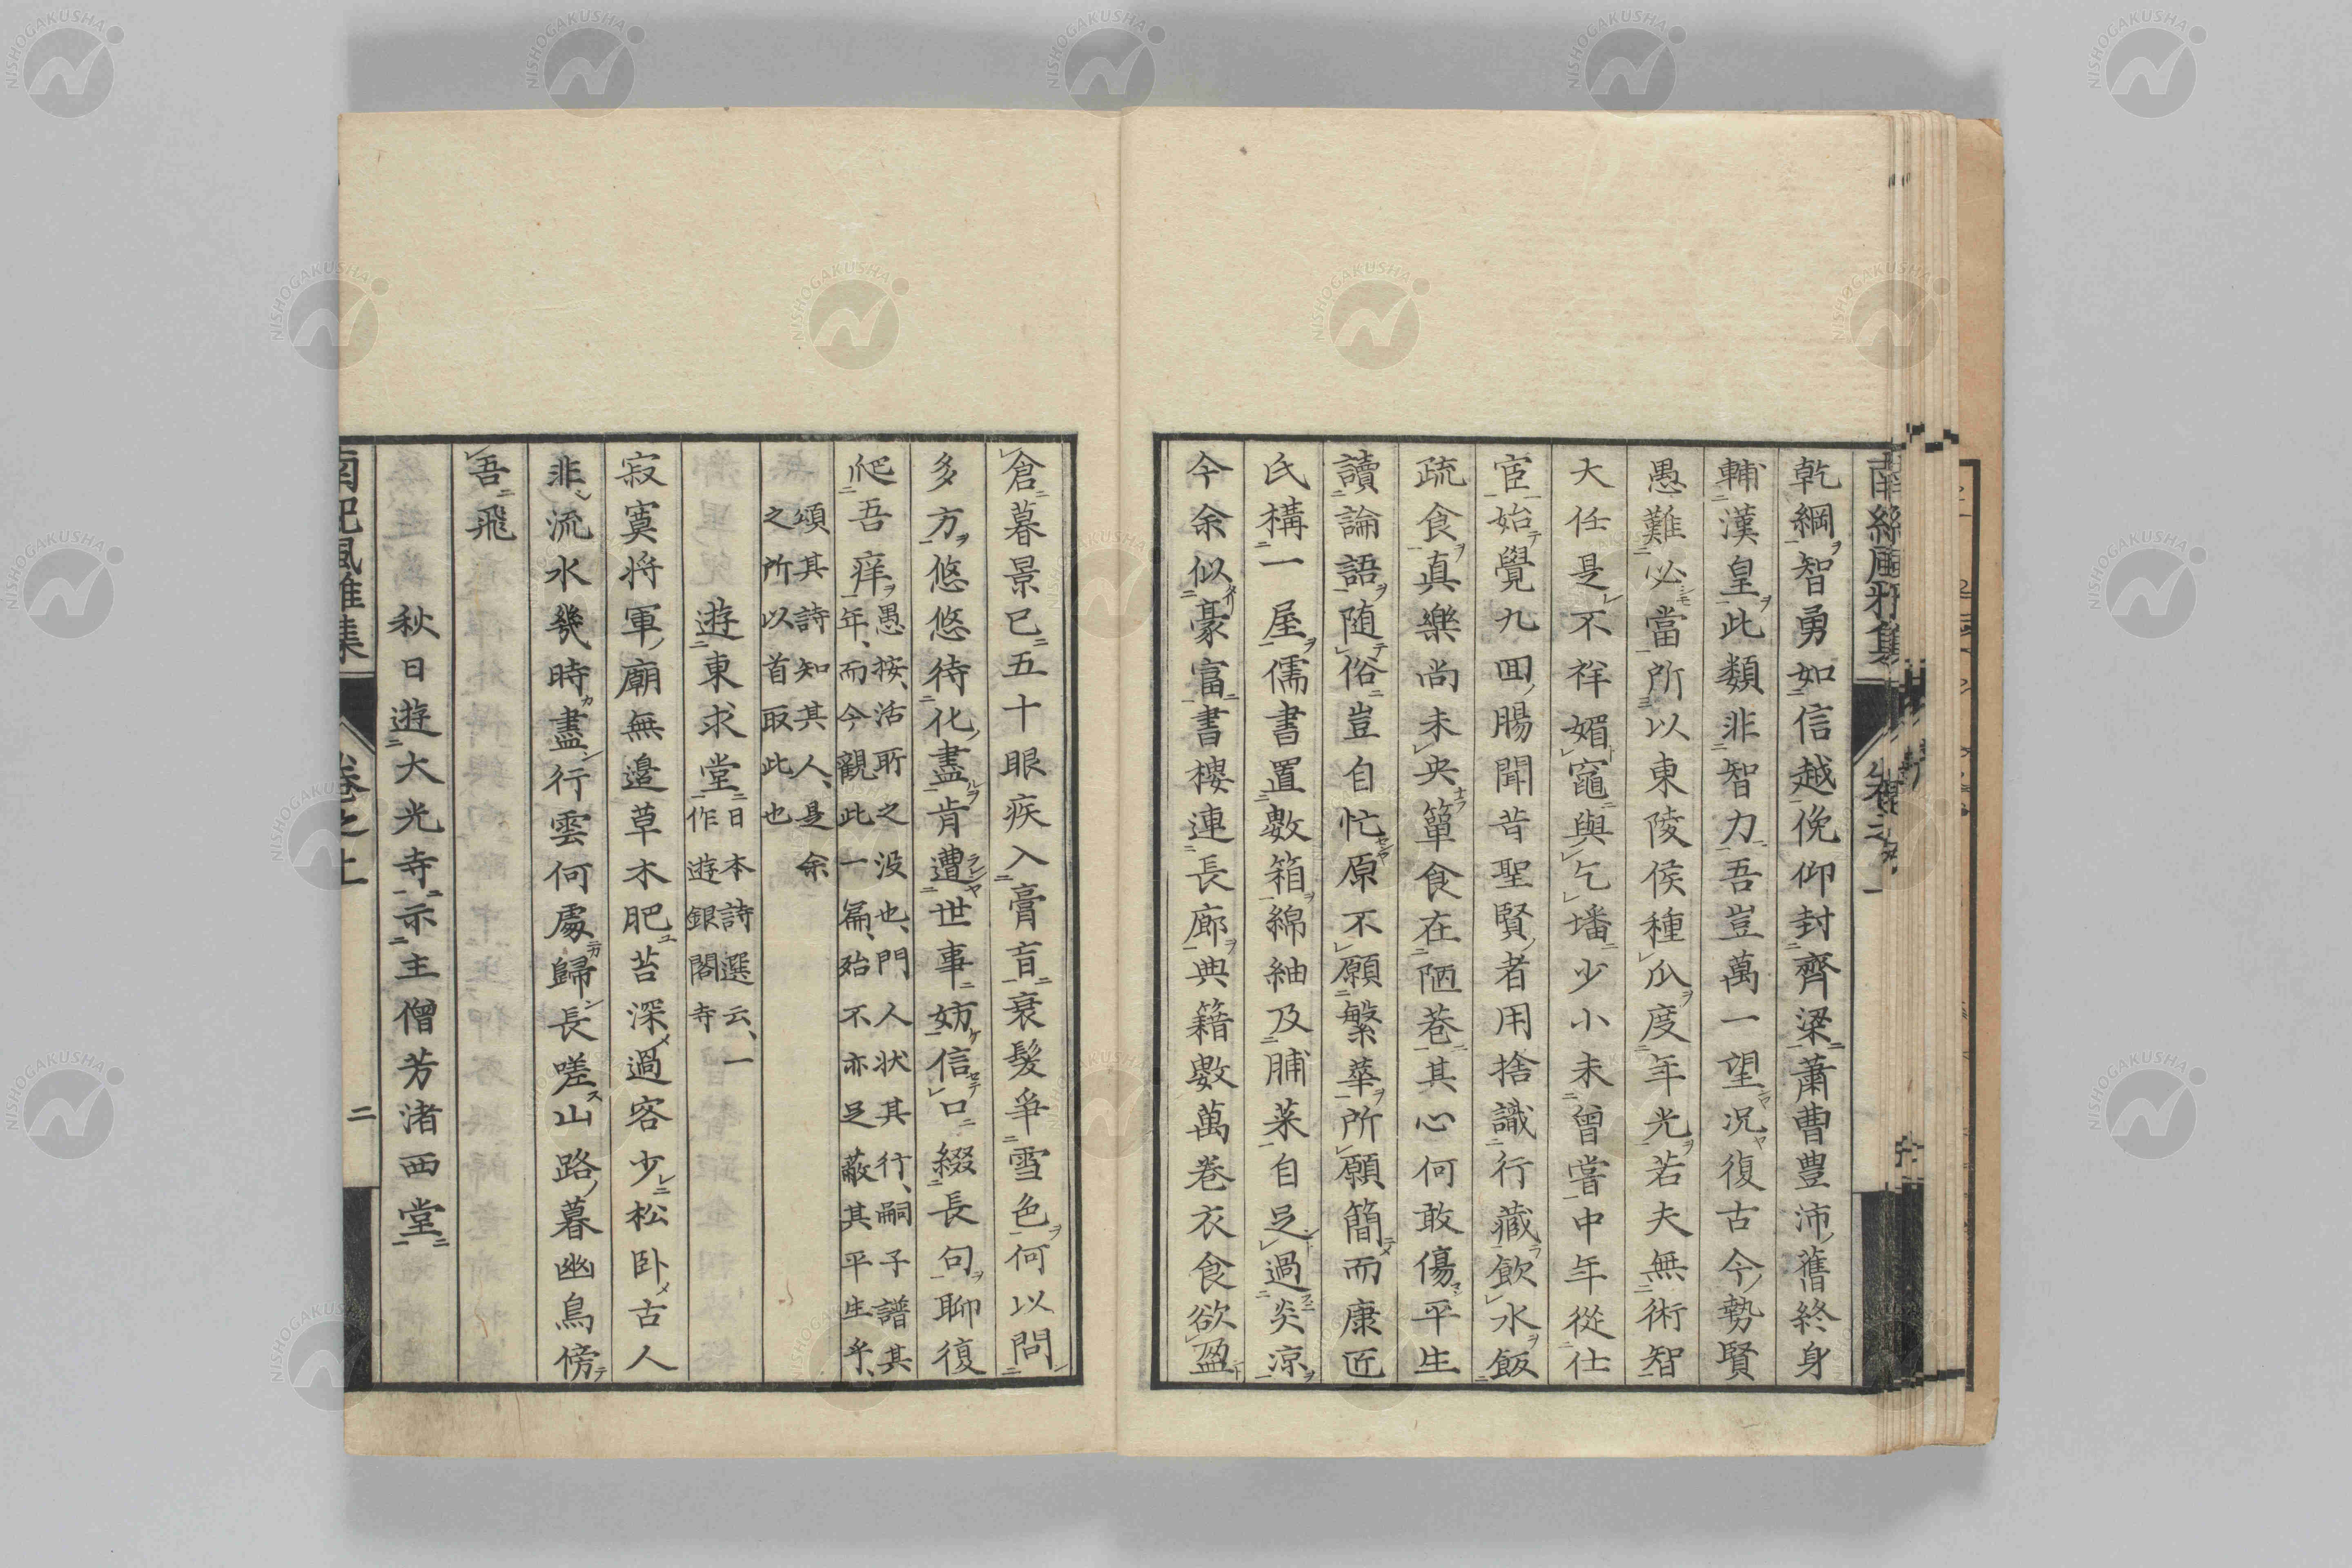 乾綱智勇如信越俛仰封齊梁蕭曹豊沛舊終身
輔漢皇此類非智力吾豈萬一望況復古今勢賢
愚難必當所以東陵侯種瓜度年光若夫無術智
大任是不祥媚竈與乞墦少小未曾嘗中年從仕
宦始覺九回腸聞昔聖賢者用捨識行藏飲水飯
疏食真樂尚未央簞食在陋巷其心何敢傷平生
讀論語随俗豈自忙原不願繁華所願簡而康近
氏構一屋儒書置數箱綿紬及脯菜自足過炎涼
今余似豪富書樓連長廊典籍數萬巻衣食欲盈
倉暮景已五十眼疾入膏肓衰髮爭雪色何以問
多方悠悠待化盡肯遭世事妨信口綴長句聊復
爬吾痒
愚按活所之没也門人状其行嗣子譜其
年而今觀此一篇殆不亦足蔽其平生乎
頌其詩知其人是余
之所以首取此也
遊東求堂
日本詩選云一
作遊銀閣寺
寂寞将軍廟無邊草木肥苔深過客少松臥古人
非流水幾時盡行雲何處歸長嗟山路暮幽鳥傍
吾飛
秋日遊大光寺示主僧芳渚西堂
南紀風雅集 卷之上 二
NISHOGAKUSHA